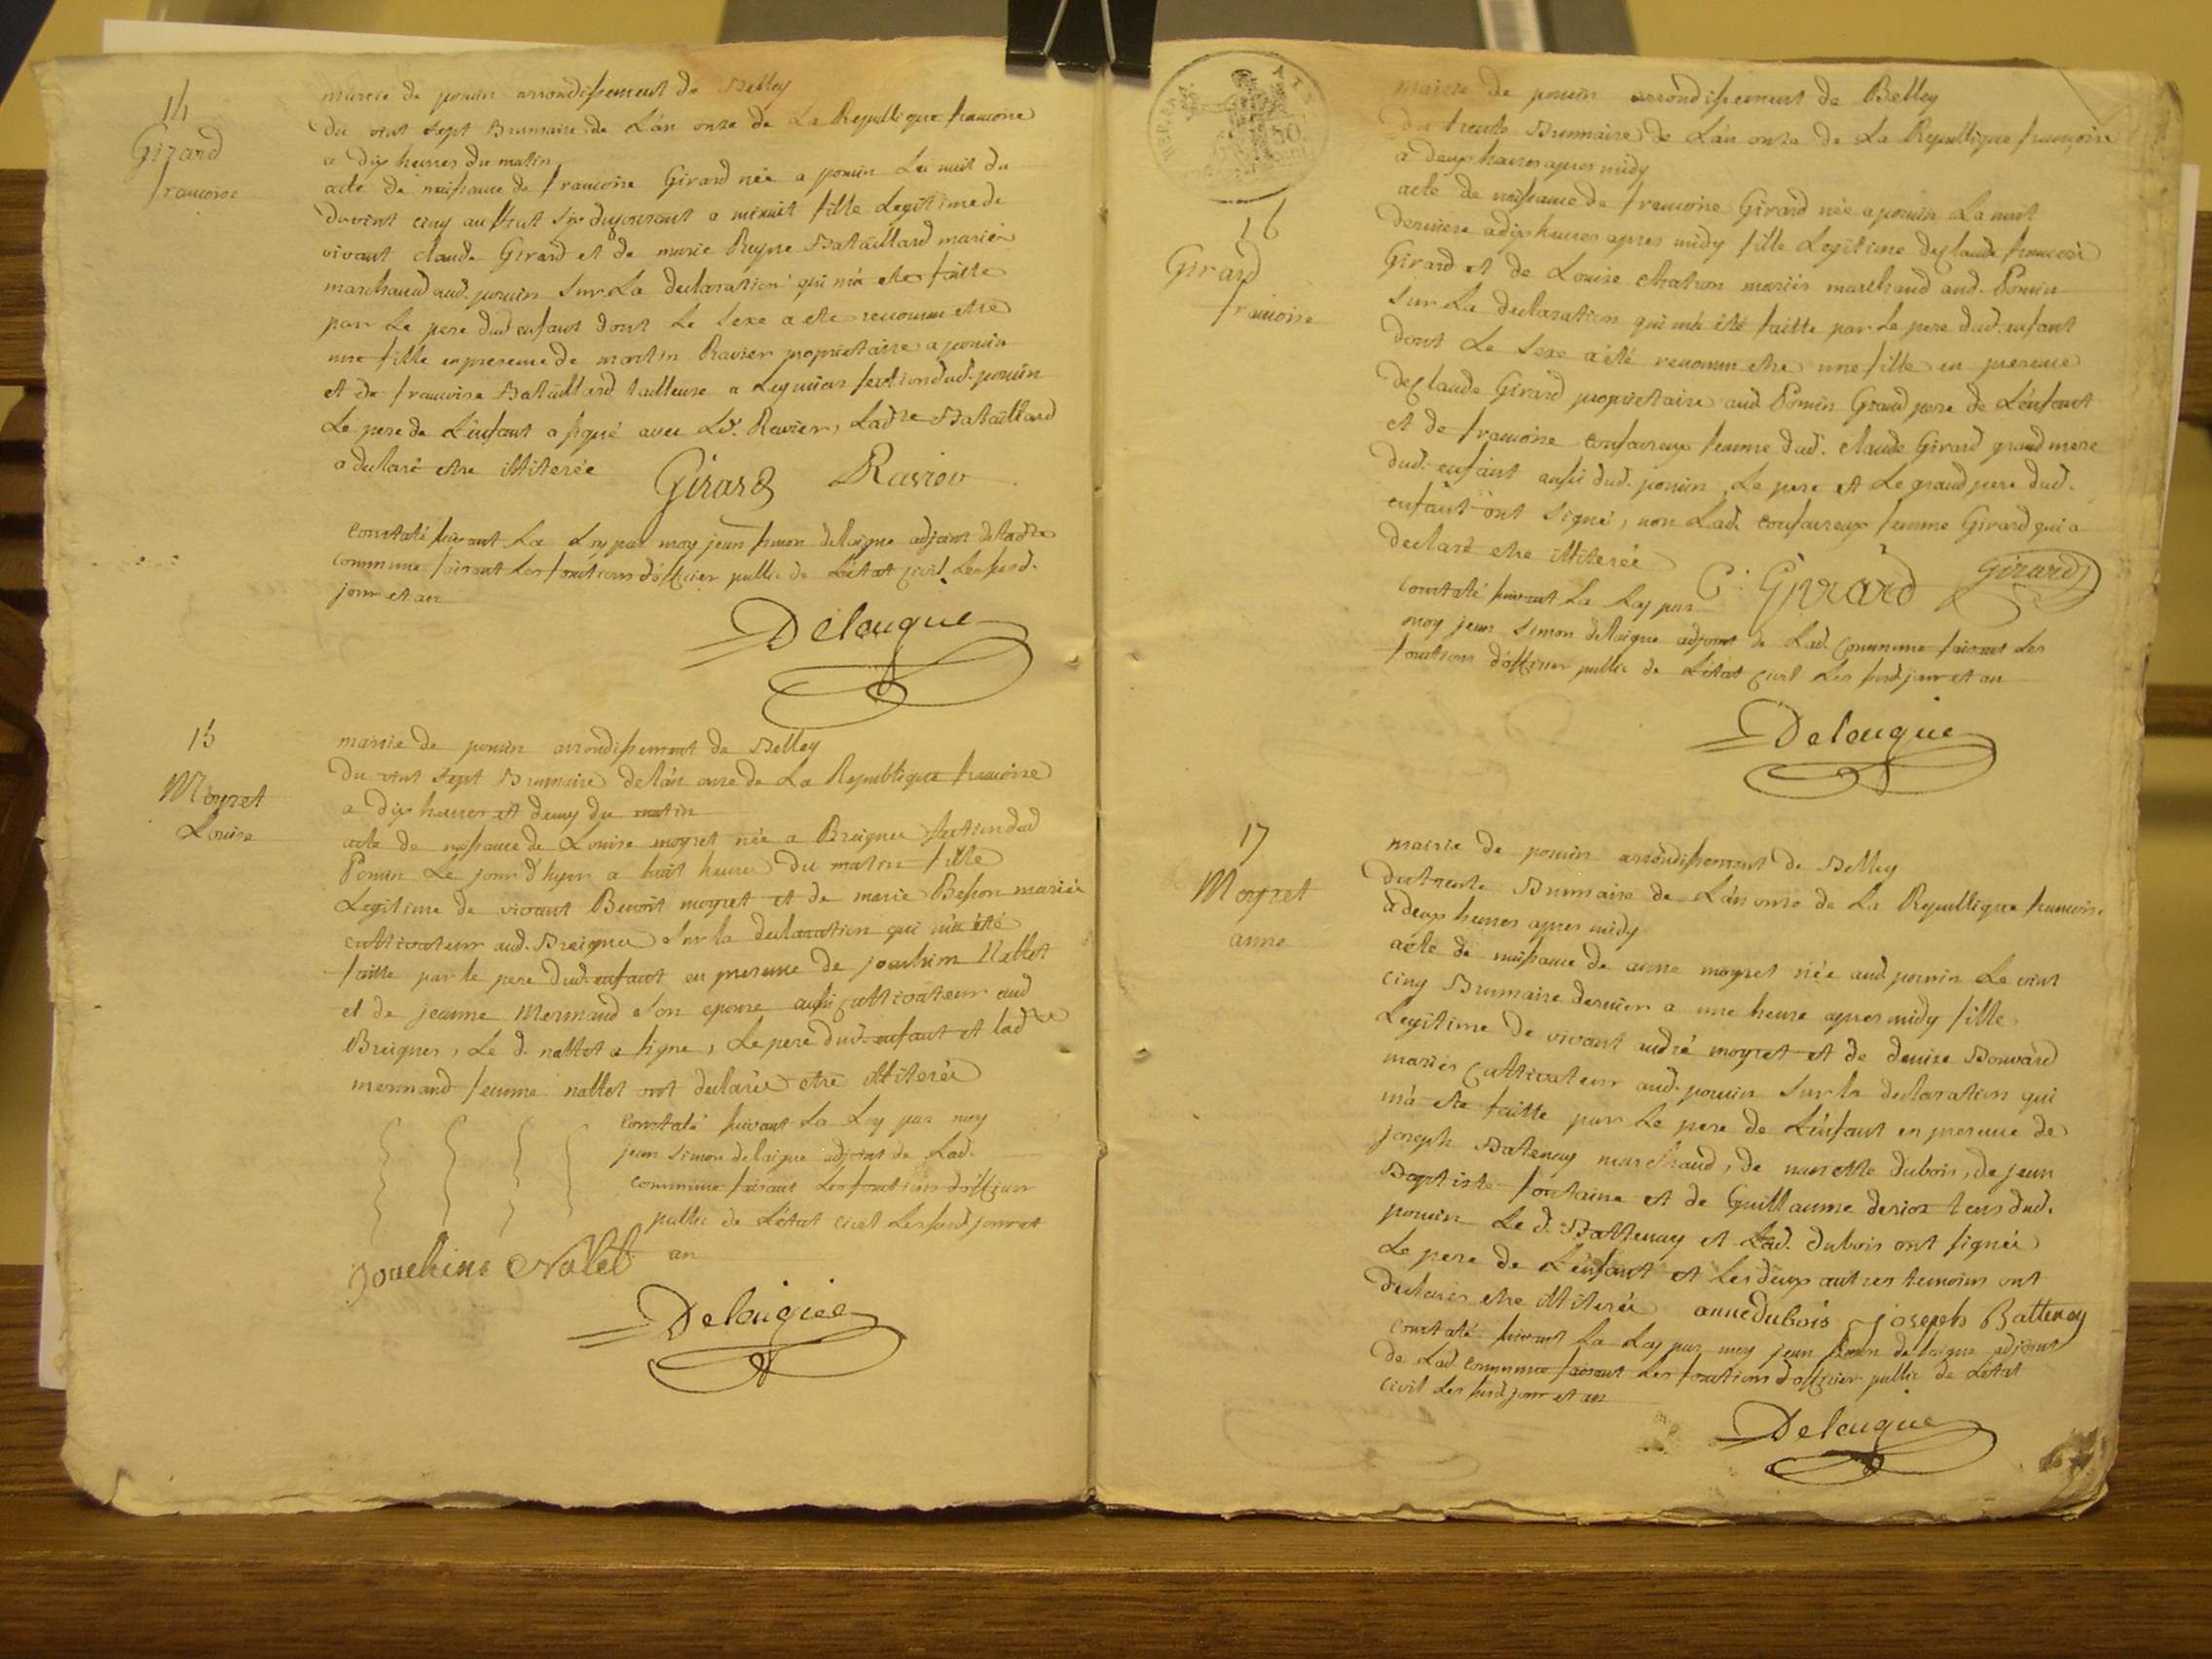 14
Girard
francoise
mairie de poncin arrondissement de Belley
du vint sept Brumaire de L'an onze de La Republique francoise
a dix heures du matin
acte de naissance de francoise Girard née a poncin La nuit du
du vint cinq au vint six du courant a minuit fille Legitime de
vivant claude Girard et de marie Reyne Bataillard mariés
marchand aud. poncin sur La declaration qui m'a ete faitte
par Le pere dud enfant dont Le sexe a ete reconnu etre
une fille en presence de martin Ravier proprietaire a poncin
et de francoise Bataillard tailleuse a section dud. poncin
Le pere de L'enfant a signé avec Ld. Ravier, Ladte Bataillard
a declaré etre illiterée Girard Ravier
constaté suivant La Loy par moy jean simon delaigue adjoint de Ladte
commune faisant Les fonctions d'officier public de L'état civil Les susd.
jour et an
Delaigue
15
Moyret
Louise
mairie de poncin arrondissement de Belley
du vint sept Brumaire de l'an onze de La Republique francoise
a dix heures et demy du matin
acte de naissance de Louise moyret née a Breignes section dud
Poncin Le jour d'hyer a huit heures du matin fille
Legitime de vivant Benoit moyret et de marie Besson mariés
cultivateur aud. Breignes sur la declaration qui m'a été
faitte par le pere dud. enfant en presence de joachim Nallet
et de jeanne Mermand son epouse aussi cultivateur aud
Breignes, Le d. nallet a signé, Le pere dud. enfant et ladte
mermand femme nallet ont declarés etre illiterés
constaté suivant La Loy par moy
jean simon delaigue adjoint de Lad.
commune faisant Les fonctions d'officier
public de L'état civil Les susd jour et
an
Joachims Nalet
Delaigue
REP. FRA.
16
Girard
francoise
mairie de poncin arrondissement de Belley
du trente Brumaire de L'an onze de La Republique francoise
a deux heures apres midy
acte de naissance de francoise Girard née a poncin La nuit
derniere a dix heures apres midy fille Legitime de claude francois
Girard et de Louise chatron mariés marchand aud. Poncin
sur La declaration qui m'a été faitte par Le pere dud. enfant
dont Le sexe a été reconnu etre une fille en presence
de claude Girard proprietaire aud Poncin Grand pere de L'enfant
et de francoise femme dud. claude Girard grand mere
dud. enfant aussi dud. poncin, Le pere et Le grand pere dud.
enfant ont signé, non Lad. femme Girard qui a
declaré etre illiterée C. Girard Girard
constaté suivant La Loy par
moy jean simon delaigue adjoint de Lad. commune faisant Les
fonctions d'officier public de L'état civil Les susd jour et an
Delaigue
17
Moyret
anne
mairie de poncin arrondissement de Belley
du trente Brumaire de L'an onze de La Republique francoise
a deux heures apres midy
acte de naissance de anne moyret née aud. poncin Le vint
cinq Brumaire dernier a une heure apres midy fille
Legitime de vivant andré moyret et de denise Bouvard
mariés cultivateur aud. poncin sur la declaration qui
m'a ete faitte par Le pere de L'enfant en presence de
joseph Batenay marchand, de dubois, de jean
Baptiste fontaine et de Guillaume tous dud.
poncin Le d. Battenay et Lad. dubois ont signés
Le pere de L'enfant et Les deux autres temoins ont
declarés etre illiterés anne dubois joseph Battenay
constaté suivant La Loy par moy jean simon delaigue adjoint
de Lad. commune faisant Les fonctions d'officier public de L'état
civil Les susd jour et an
Delaigue